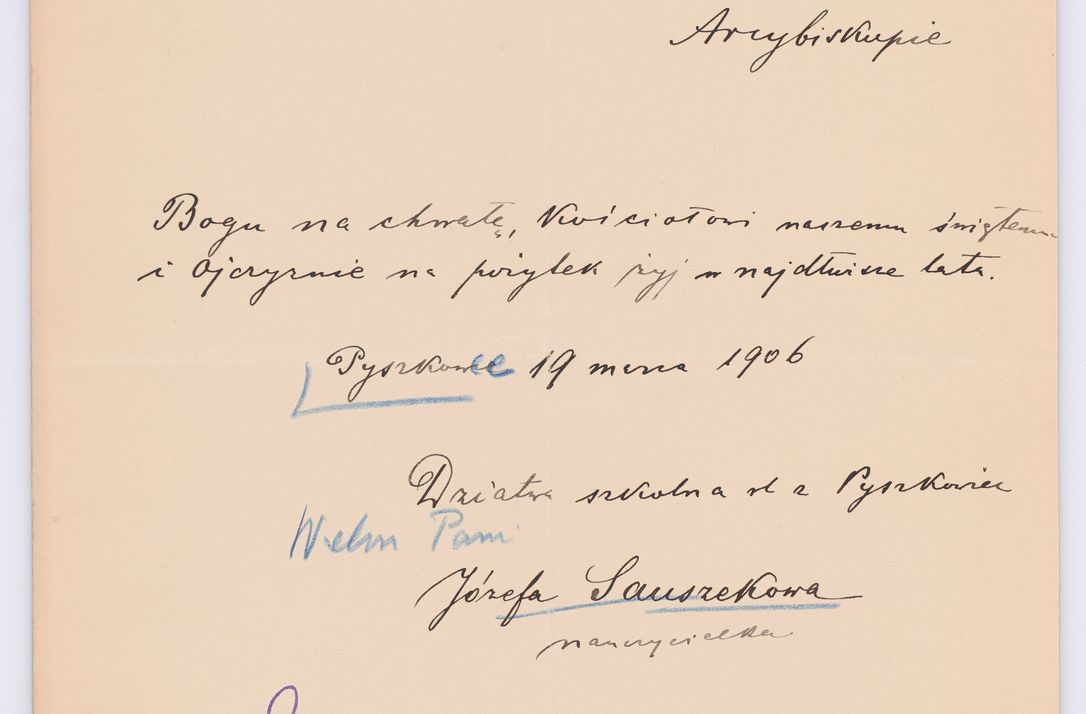 Arcybiskupie
Bogu na chwałę, Kościołowi naszemu świętemu
i Ojczyznie na pożytek żyj w najdłuższe lata.
Pyszkowce 19 marca 1906
Dziatwa szkolna z Pyszkowiec
Welm Pani
Józefa Sauszekowa
nauczycielka